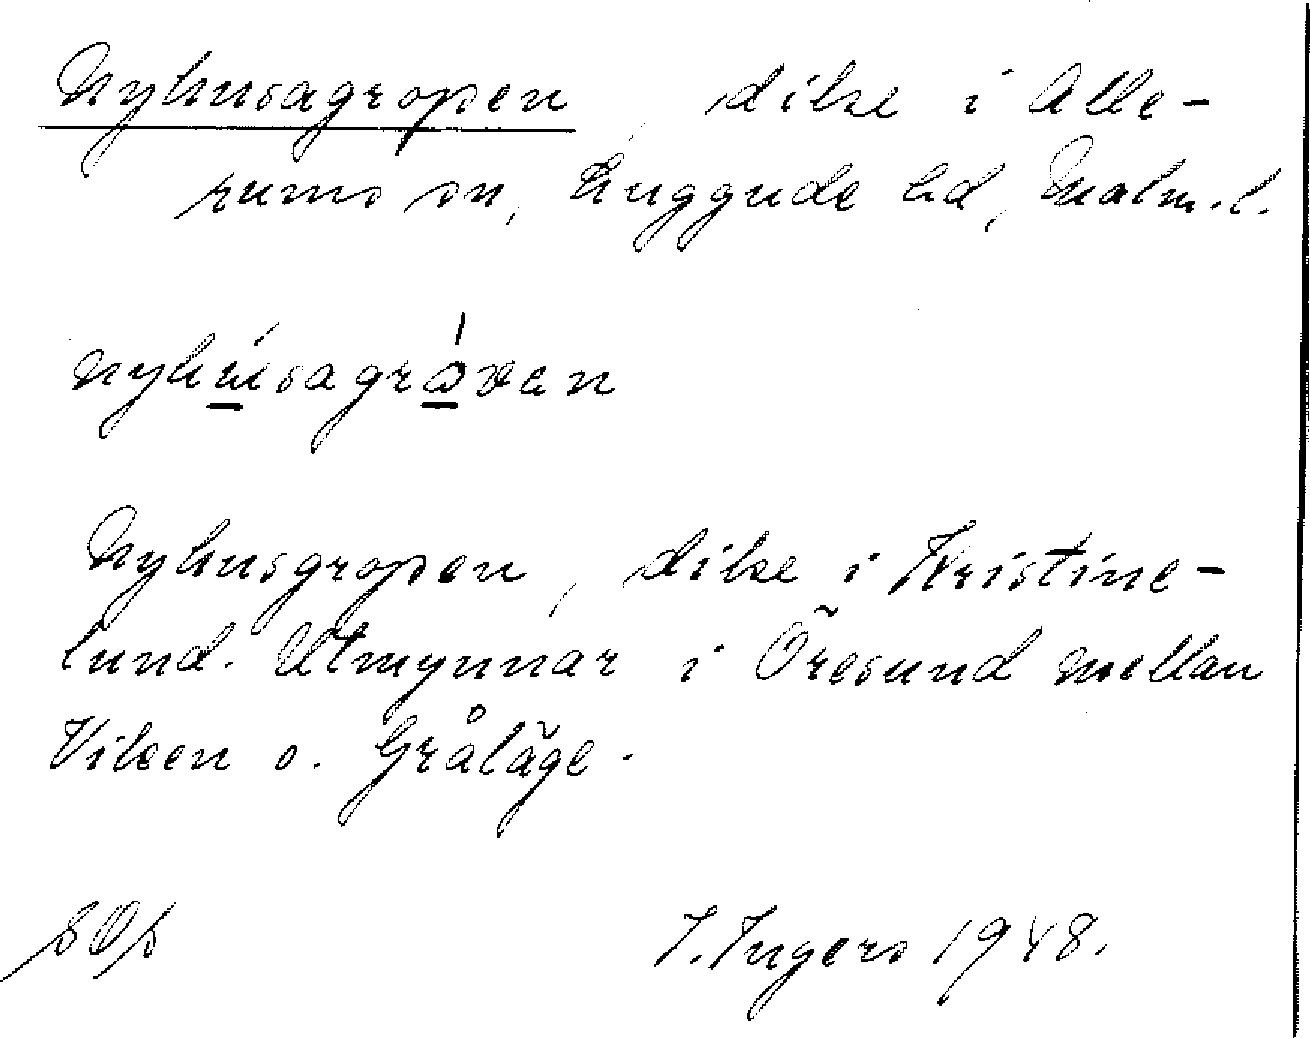 Nyhusagropen, dike i Alle-
rums sn, Luggude hd, Malm.l.
nyhúsagróvan
Nyhusgropen, dike i Kristine-
lund. Utmynnar i Öresund mellan
Viken o. Gråläge.
I. Ingers 1948.